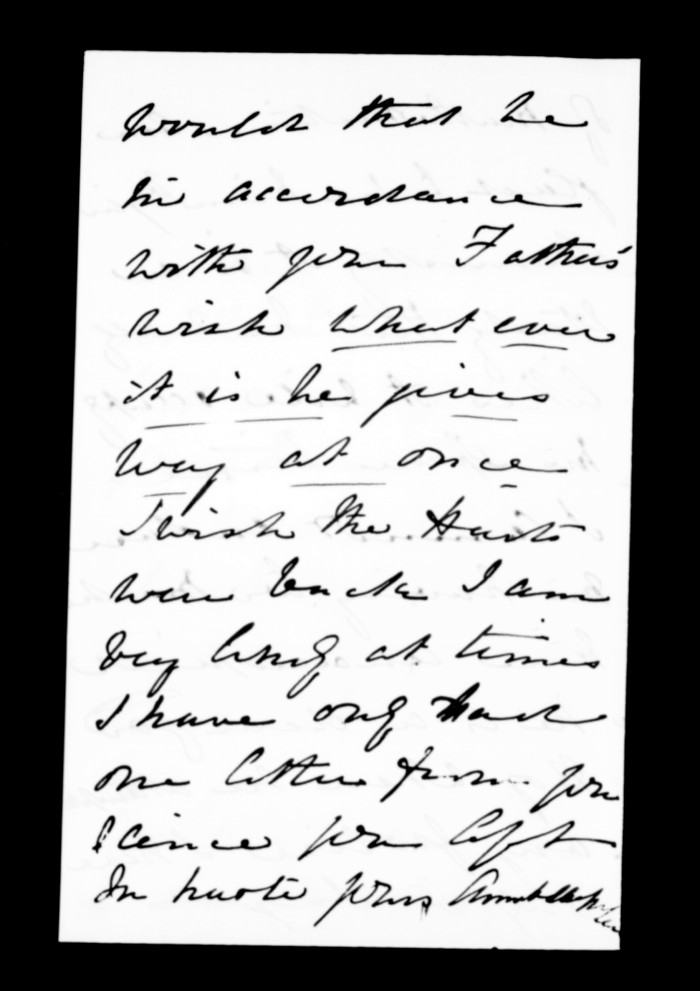 would that be
in accordance
with your Father's
wish what ever
it is he gives
way at once
I wish the Harts
were back I am
very lonely at times
I have only had
one letter from you
since you left
In haste yours